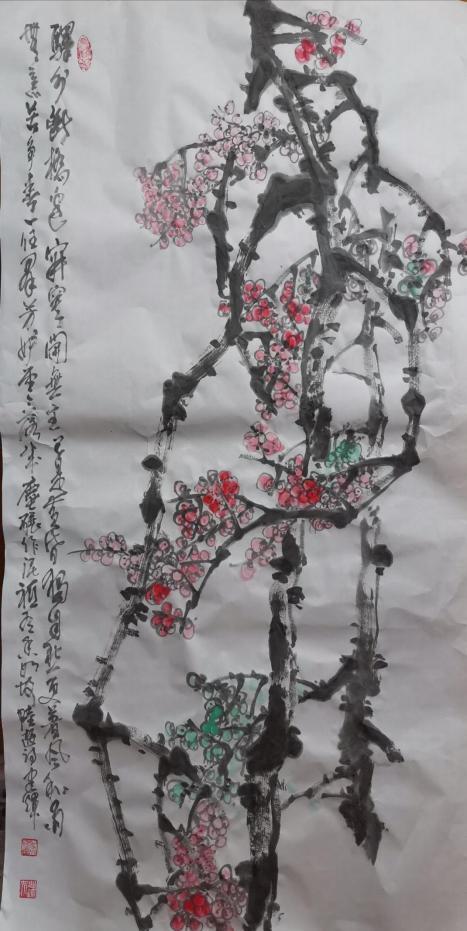 驛外斷橋邊寂寞開無主已是黃昏獨自愁更著風和雨
無意苦爭春一任群芳妒零落成塵碾作泥祗有香如故陸游詞